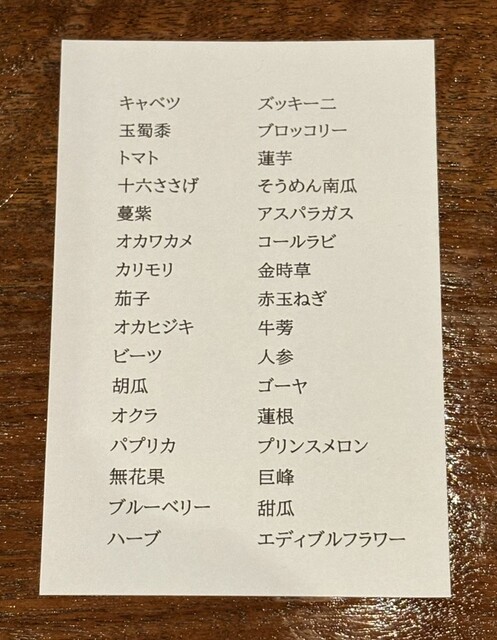 キャベツ
玉蜀黍
トマト
十六ささげ
蔓紫
オカワカメ
カリモリ
茄子
オカヒジキ
ビーツ
胡瓜
オクラ
パプリカ
無花果
ブルーベリー
ハーブ
ズッキーニ
ブロッコリー
蓮芋
そうめん南瓜
アスパラガス
コールラビ
金時草
赤玉ねぎ
牛蒡
人参
ゴーヤ
蓮根
プリンスメロン
巨峰
甜瓜
エディブルフラワー